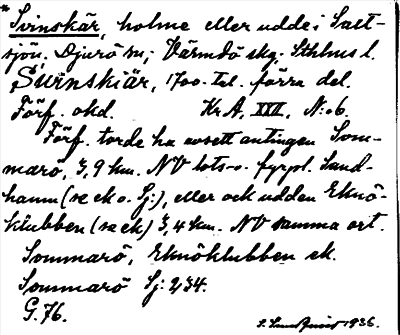 * Svinskär, holme eller udde i Salt-
sjön, Djurö sn; Värmdö skg. Sthlms l.
Suinskiär, 1700-tal. förra del.
Förf. okd. Kr A, XIII, N:o 6.
Förf. torde ha avsett antingen Som-
marö, 3,9 km. NV lots- o. fyrpl. Sand-
hamn (se ek o. Sj:), eller ock udden Eknö-
klubben (se ek) 3,4 km. NV samma ort.
Sommarö, Eknöklubben ek.
Sommarö Sj: 234.
G. 76.
1936.